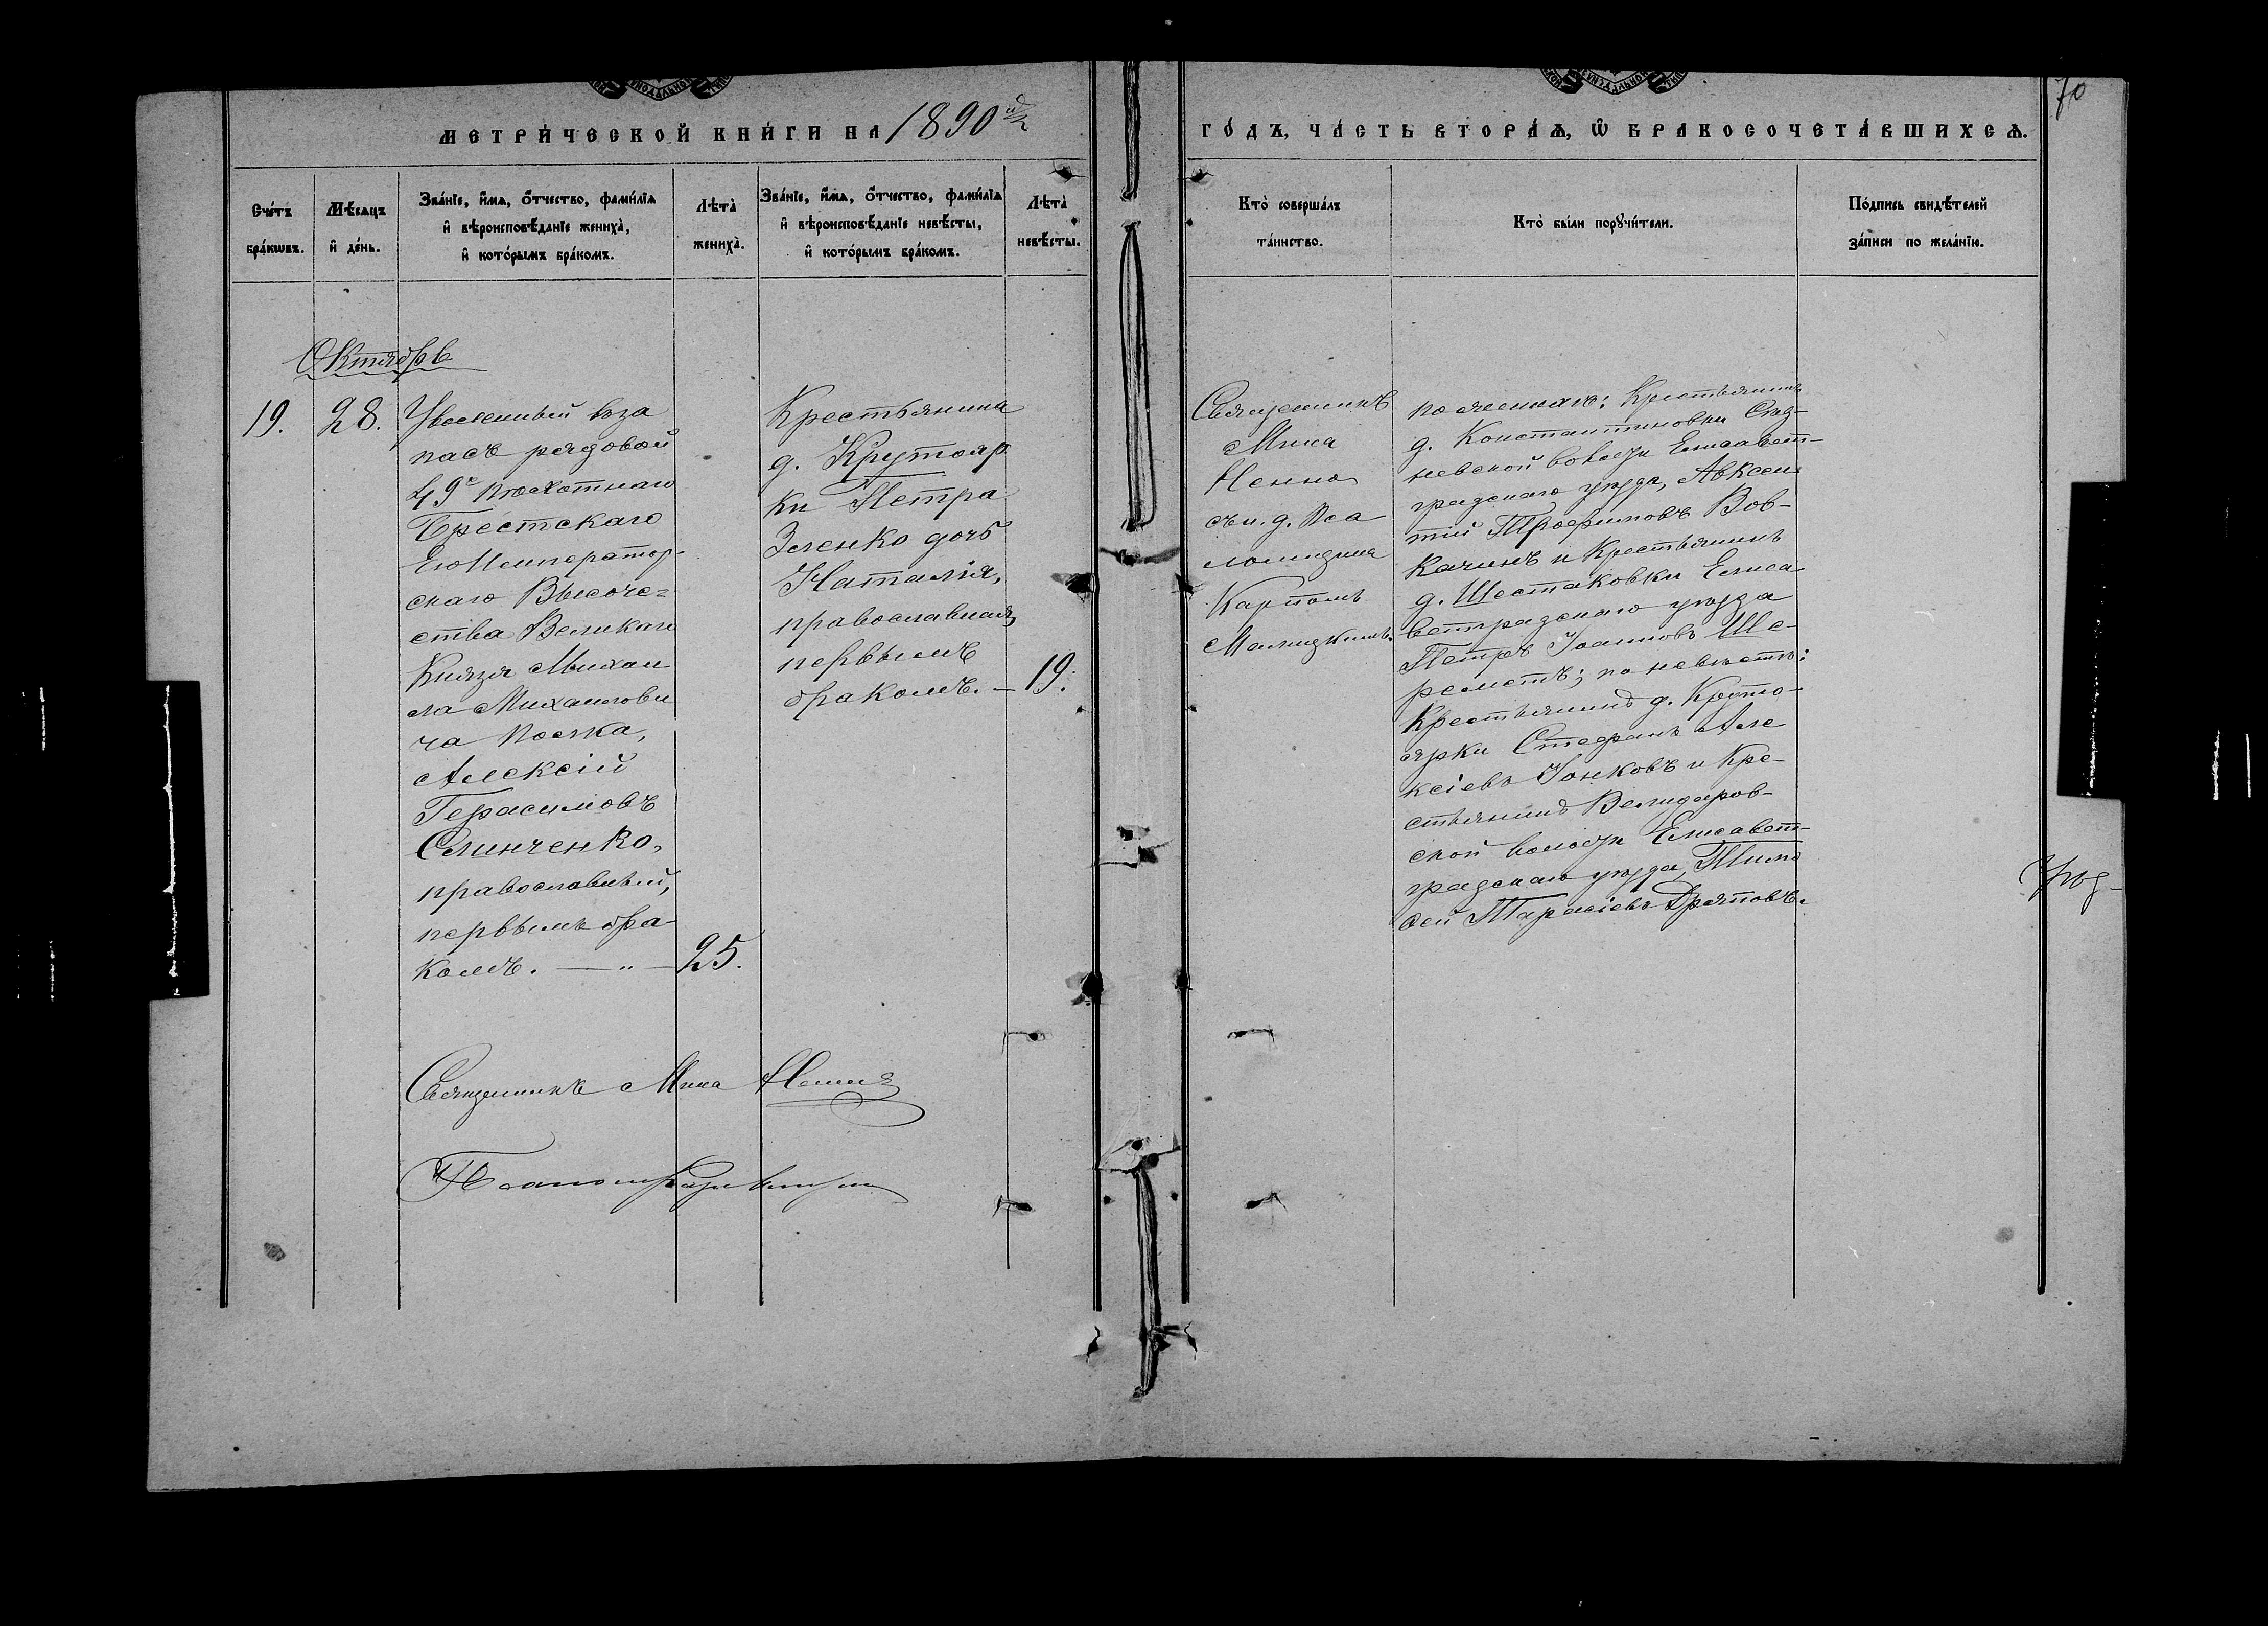 70
МЕТРИ́ЧЕСКОЙ КНИ́ГИ НА 1890й
ГО́ДЪ, ЧА́СТЬ ВТОРА́Ѧ, Ѿ БРАКОСОЧЕТА́ВШИХСѦ.
Сче́тъ бра́кѡвъ.
Мѣ́сяцъ и҆ де́нь.
Зва́нїе, и҆́мя, ѻ҆́тчество, фами́лїя и҆ вѣроисповѣ́данїе жениха̀, и҆ кото́рымъ бра́комъ.
Лѣта̀ жениха̀.
Зва́нїе, и҆́мя, ѻ҆́тчество, фами́лїя и҆ вѣроисповѣ́данїе невѣ́сты, и҆ кото́рымъ бра́комъ.
Лѣта̀ невѣ́сты.
Кто̀ соверша́лъ та́инство.
Кто̀ бы́ли порꙋчи́тели.
По́дпись свидѣ́телей за́писи по жела́нїю.
Октябрь
19.
28.
Уволенный въ за
пасъ рядовой
49го пѣхотнаго
Брестскаго
Его Император-
скаго Высоче=
ства Великаго
Князя Михаи
ла Михаилови
ча полка,
Алексій
Герасимовъ
Слинченко,
православный,
первымъ бра-
комъ. — „ —
25.
Крестьянина
д. Крутояр
ки Петра
Зленко дочь
Наталія,
православная,
первымъ
бракомъ. —
19.
Священникъ
Мина
Ненно
съ и. д. Пса
ломщика
Карпомъ
по женихѣ: Крестьянинъ
д. Константиновки
невской волости Елисавет-
градскаго уѣзда, Авксен
тій Трофимовъ Вов-
каченъ и Крестьянинъ
д. Шестаковки Елиса
ветградскаго уѣзда
Петръ Іоанновъ Ше-
реметъ; по невѣстѣ:
Крестьянинъ д. Круто-
ярки Стефанъ Але
ксіевъ Іонковъ и Кре-
стьянинъ
ской волости Елисавет-
градскаго уѣзда, Тимо
фей Тарасіевъ
Священникъ Мина